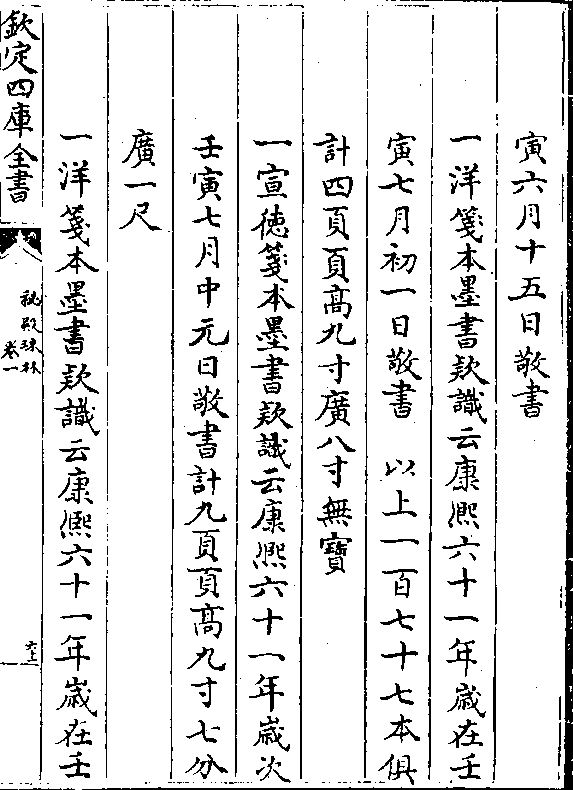 寅六月十五日敬書
一洋箋本墨書欵識云康熈六十一年嵗在壬
寅七月初一日敬書 以上一百七十七本俱
計四頁頁髙九寸廣八寸無寶
一宣徳箋本墨書欵識云康熈六十一年嵗次
壬寅七月中元日敬書計九頁頁髙九寸七分
廣一尺
一洋箋本墨書欵識云康熈六十一年嵗在壬
欽定四庫全書
秘殿珠林
卷一